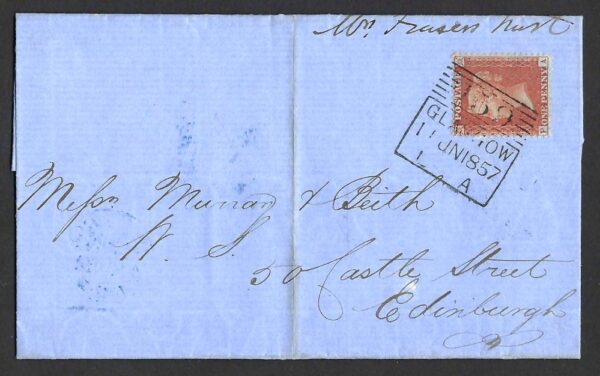 Mrs Frasers Trust
POSTAGE
ONE PENNY
A
P
159
GLASGOW
11 JN 1857
A
Messrs Murray & Beith
W. S.
50 Castle Street
Edinburgh